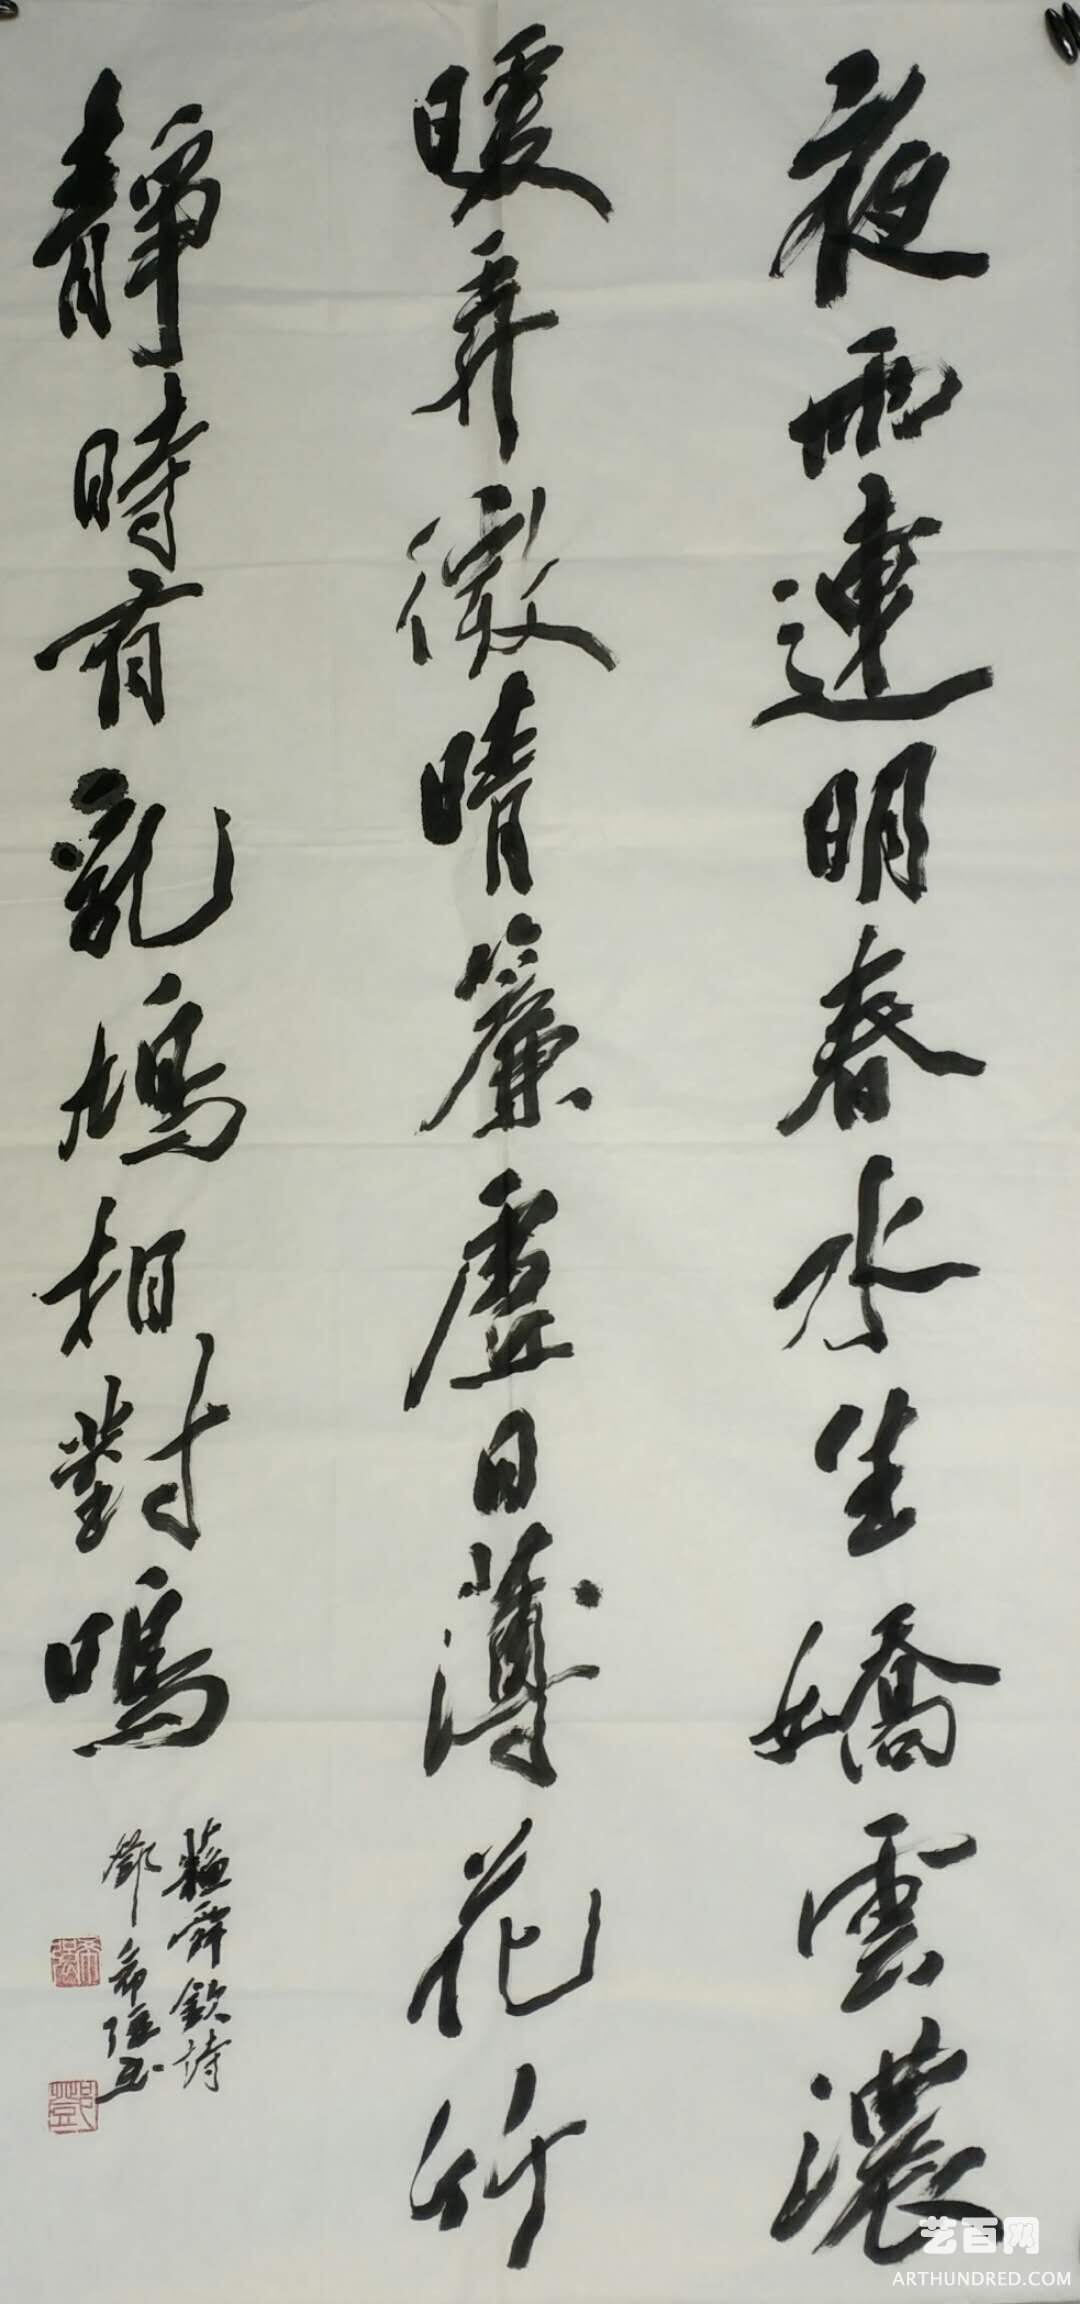 夜雨連明春水生嬌雲濃
暖弄微晴簾虛日薄花竹
靜時有乳鳩相對鳴
蘇舜欽詩
鄧希強書
艺百网
ARTHUNDRED.COM